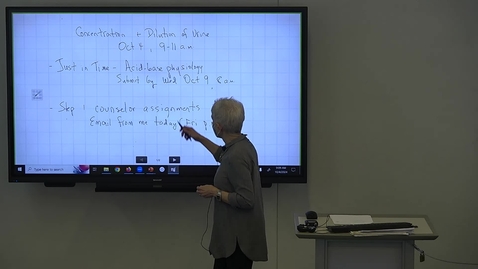 Concentration + Dilution of Urine
Oct 4, 9-11 am
- Just in Time - Acid-base physiology
Submit by Wed Oct 9, 8 am
- Step 1 counselor assignments
Email from me today (Fri
Type here to search